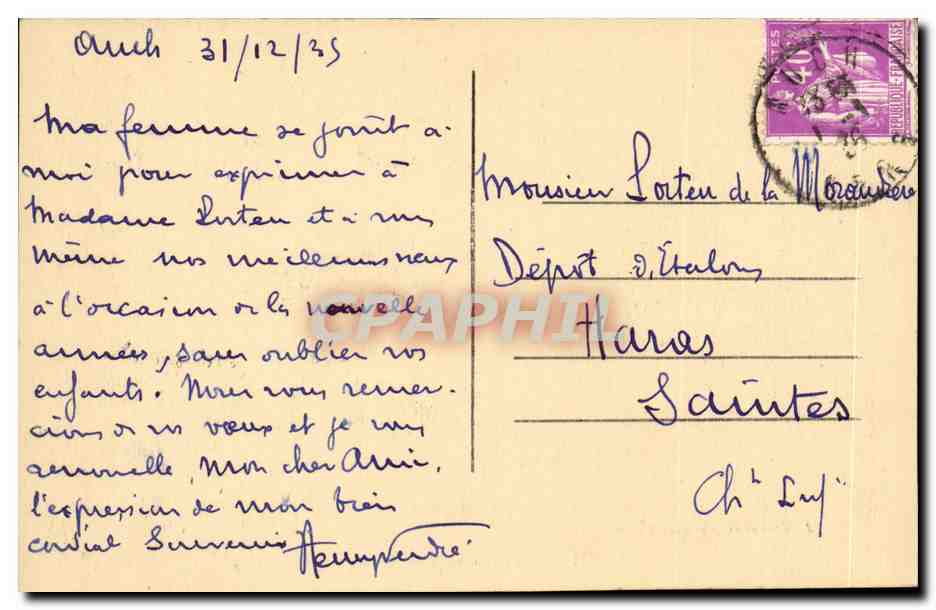 Auch 31/12/35
Ma femme se joint à
moi pour exprimer à
Madame Lorteu et à vous
même nos meilleurs vœux
à l'occasion de la nouvelle
année, sans oublier vos
enfants. Nous vous remer-
cions de vos vœux et je vous
renouvelle, mon cher Ami,
l'expression de mon bien
cordial Souvenir
Monsieur Lorteu de la
Dépôt d'Etalons
Haras
Saintes
Ch
POSTES
40c
REPUBLIQUE FRANÇAISE
AUCH
CPAPHIL